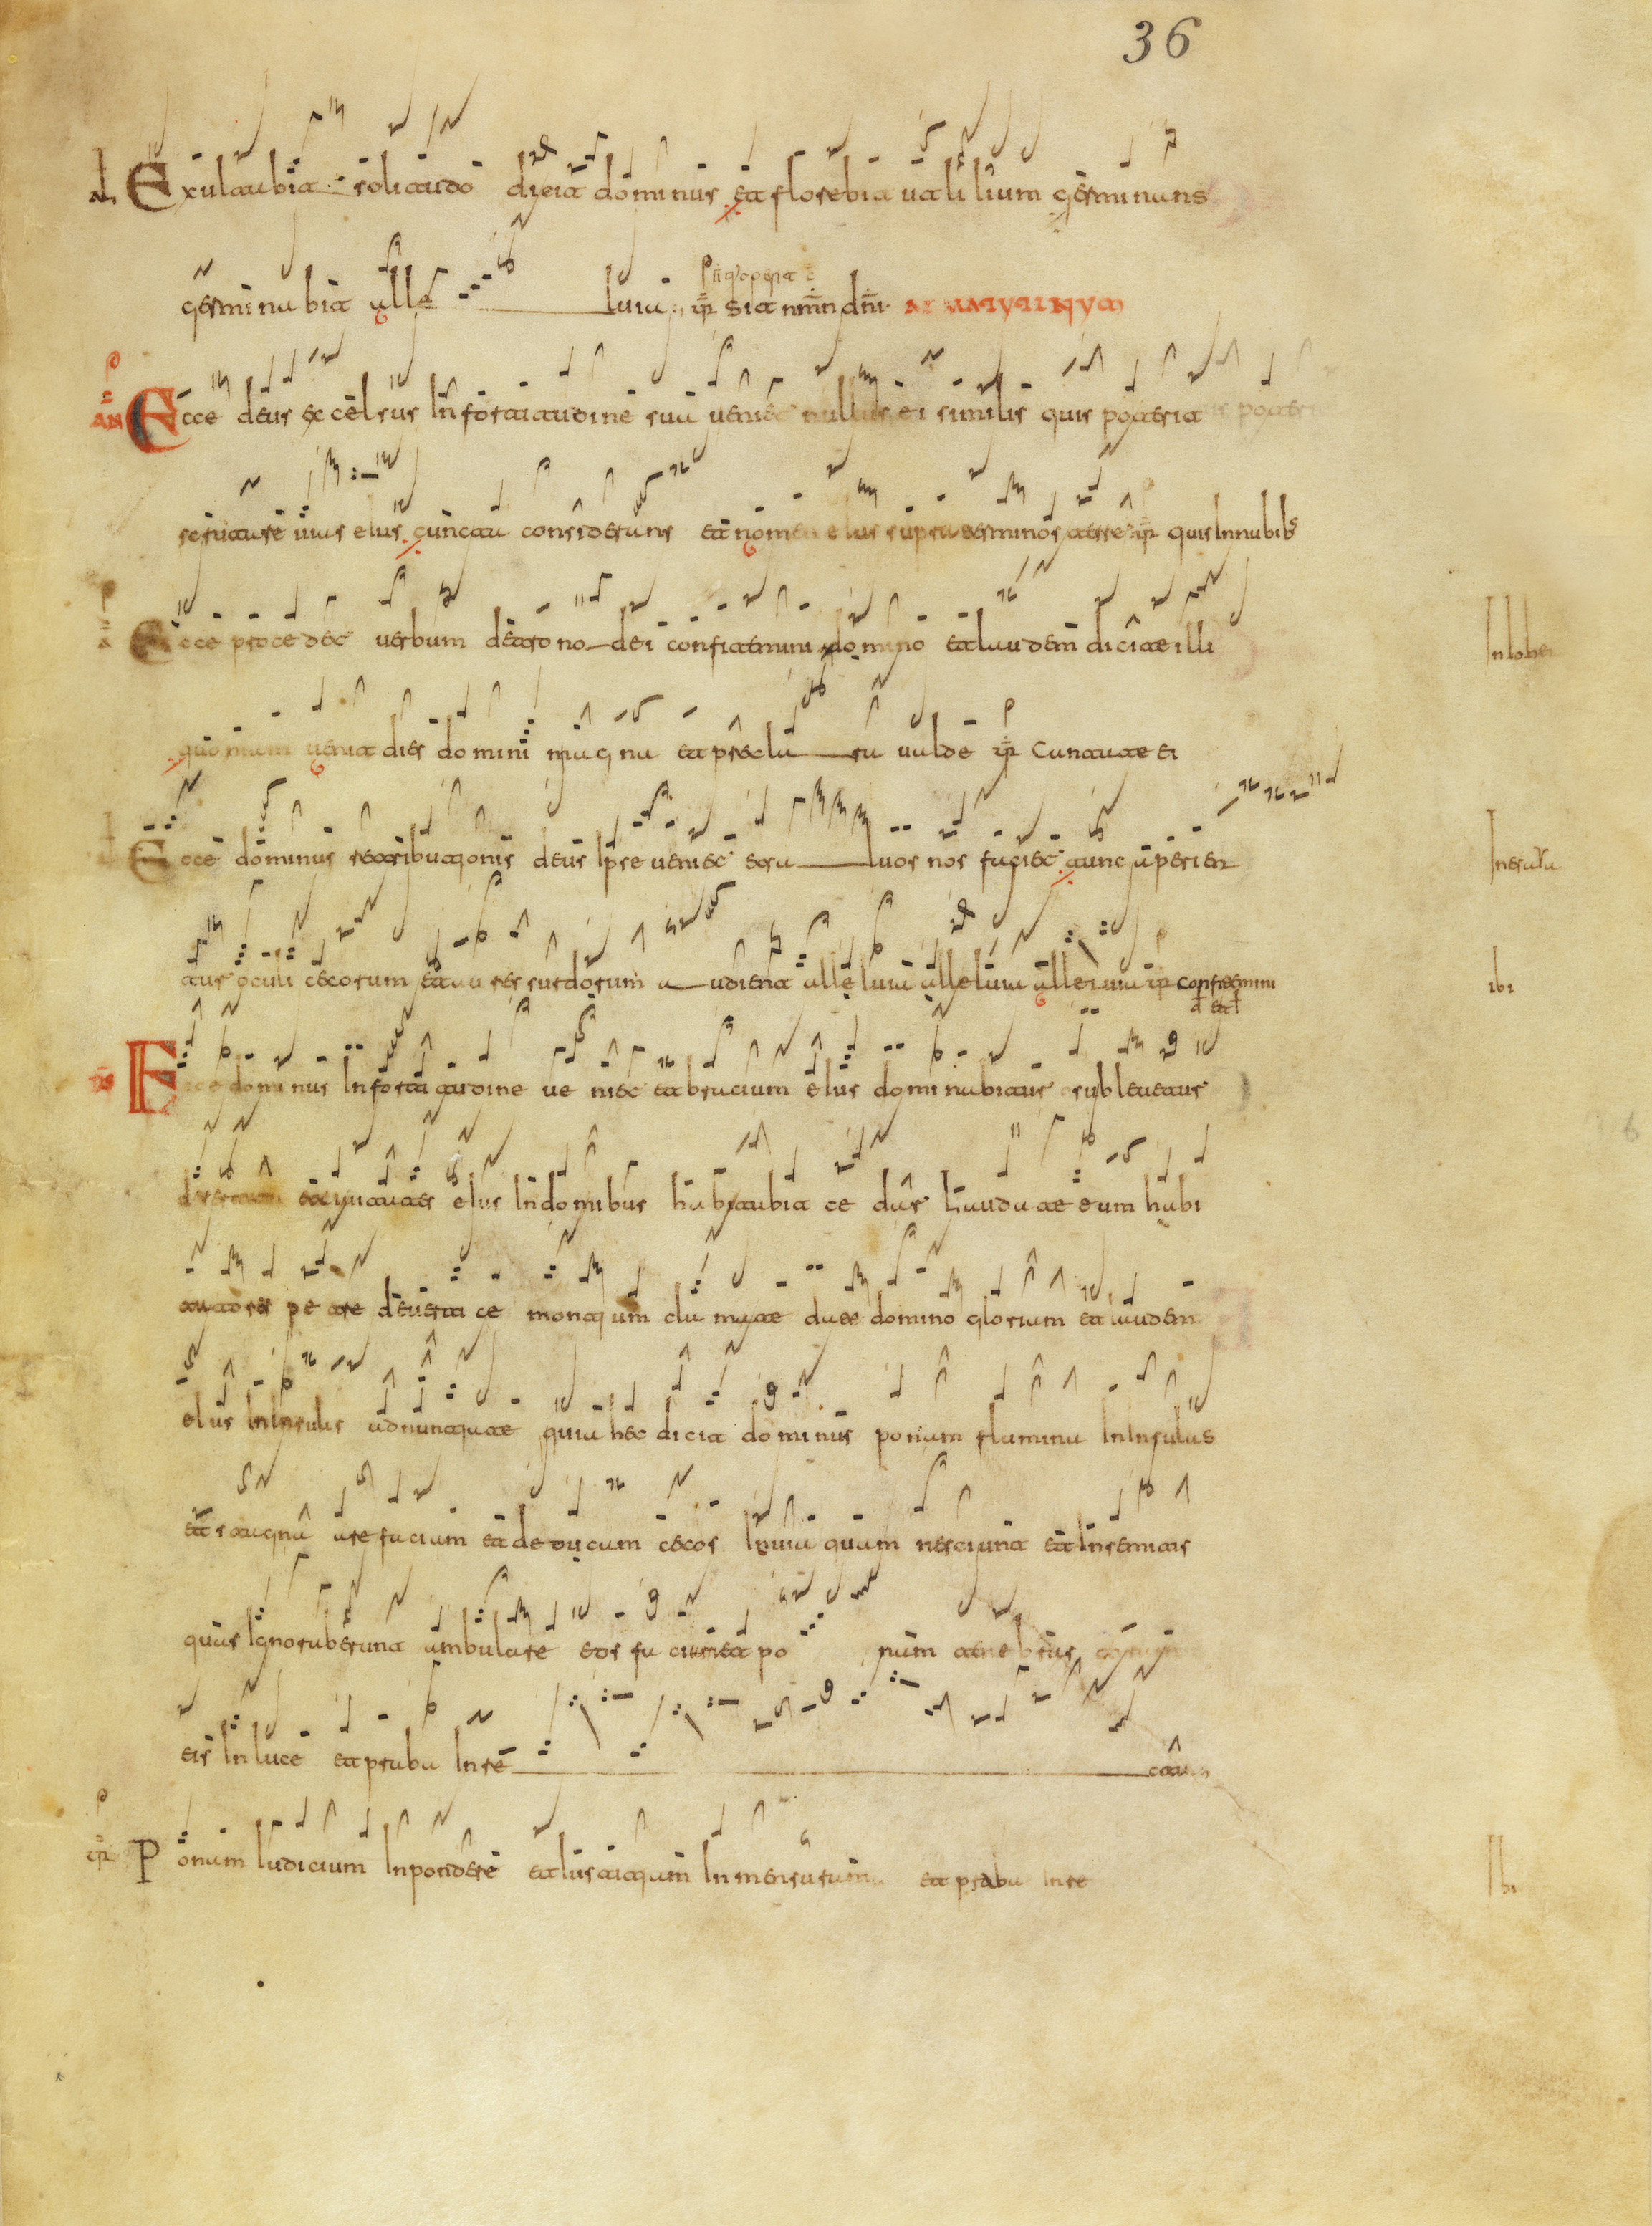 36
Exultabit solitudo dicit dominus et florebit ut lilium germinans
germinabit alleluia Sit nmn dni
AN Ecce deus excelsus In fortitudine sua veniet nullus ei similis quis poterit
scrutare uias eius cuncta considerans et nomen eius supra terminos terre quis In nubibs
Ecce procedet verbum de trono dei confitemini domino et laudem dicite illi
In lohel
quoniam veniet dies domini magna et preclara valde Cantate ei
Ecce dominus retributionis deus Ipse veniet et saluos nos faciet tunc aperien
In esaya
tur oculi cecorum et aures surdorum audient alleluia alleluia alleluia confitemini
ibi
Ecce dominus In fortitudine veniet et bracium eius dominabitur subleuetur
desertum et ciuitates eius In domibus habitabit cedar laudate eum habi
tatores petre de vertice montium clamate date domino gloriam et laudem
eius In Insulis adnuntiate quia hec dicit dominus ponam flumina In Insulas
et stagna arefaciam et deducam cecos In uia quam nesciunt et In semitis
quas Ignoraberunt ambulare eos faciam et ponam tenebras coram
eis In luce et praba In recta
Ponam Iudicium In pondere et Iustitiam In mensura et praba In re
Ibi